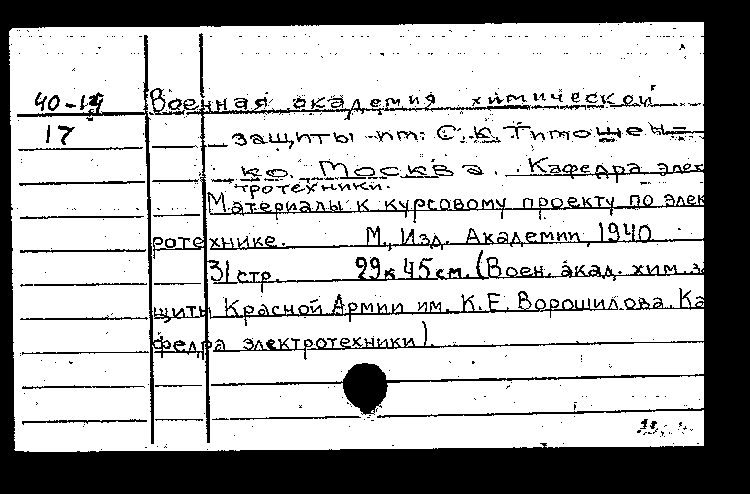 40-19 Военная академия химической
17 защиты им. С.К. Тимошен=
ко. Москва. Кафедра элек
тротехники.
Материалы к курсовому проекту по элек
ротехнике. М., Изд. Академии, 1940
31 стр. 29 x 45 см. (Воен. акад. хим. за
щиты Красной Армии им. К.Е. Ворошилова. Ка
федра электротехники).